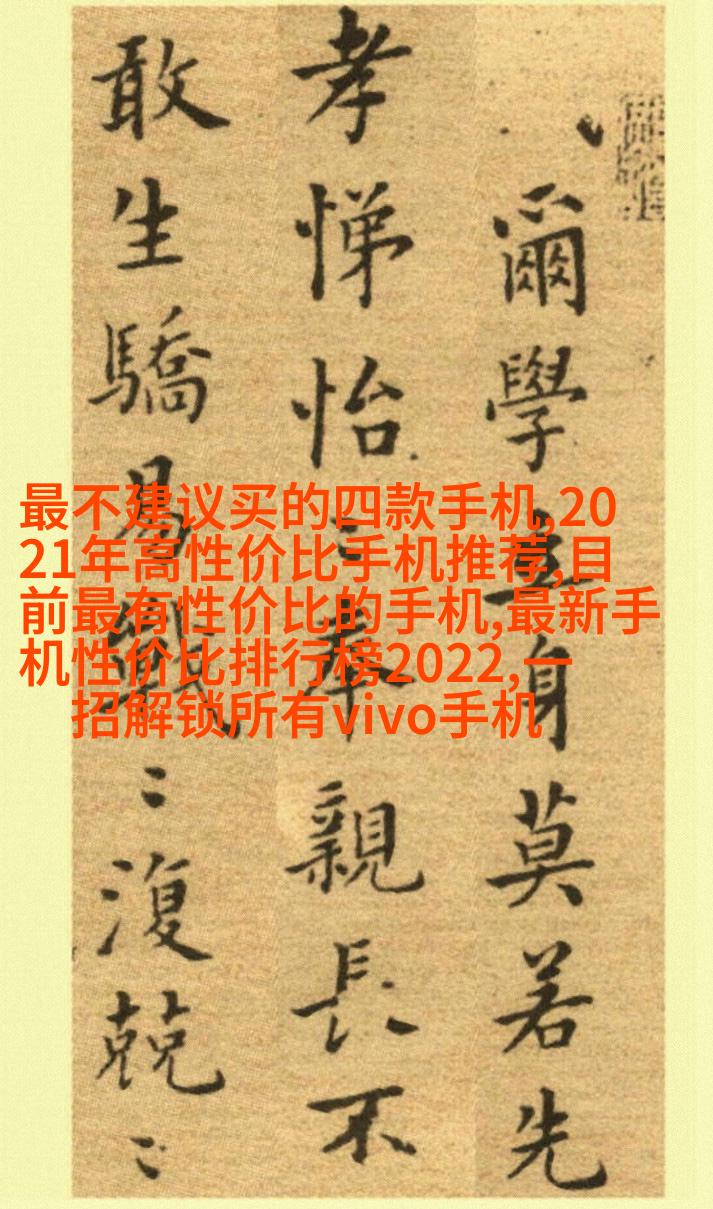 爾學立身莫若先
孝悌怡〻奉親長不
敢生驕易戰〻復兢〻
最不建议买的四款手机,20
21年高性价比手机推荐,目
前最有性价比的手机,最新手
机性价比排行榜2022,一
招解锁所有vivo手机